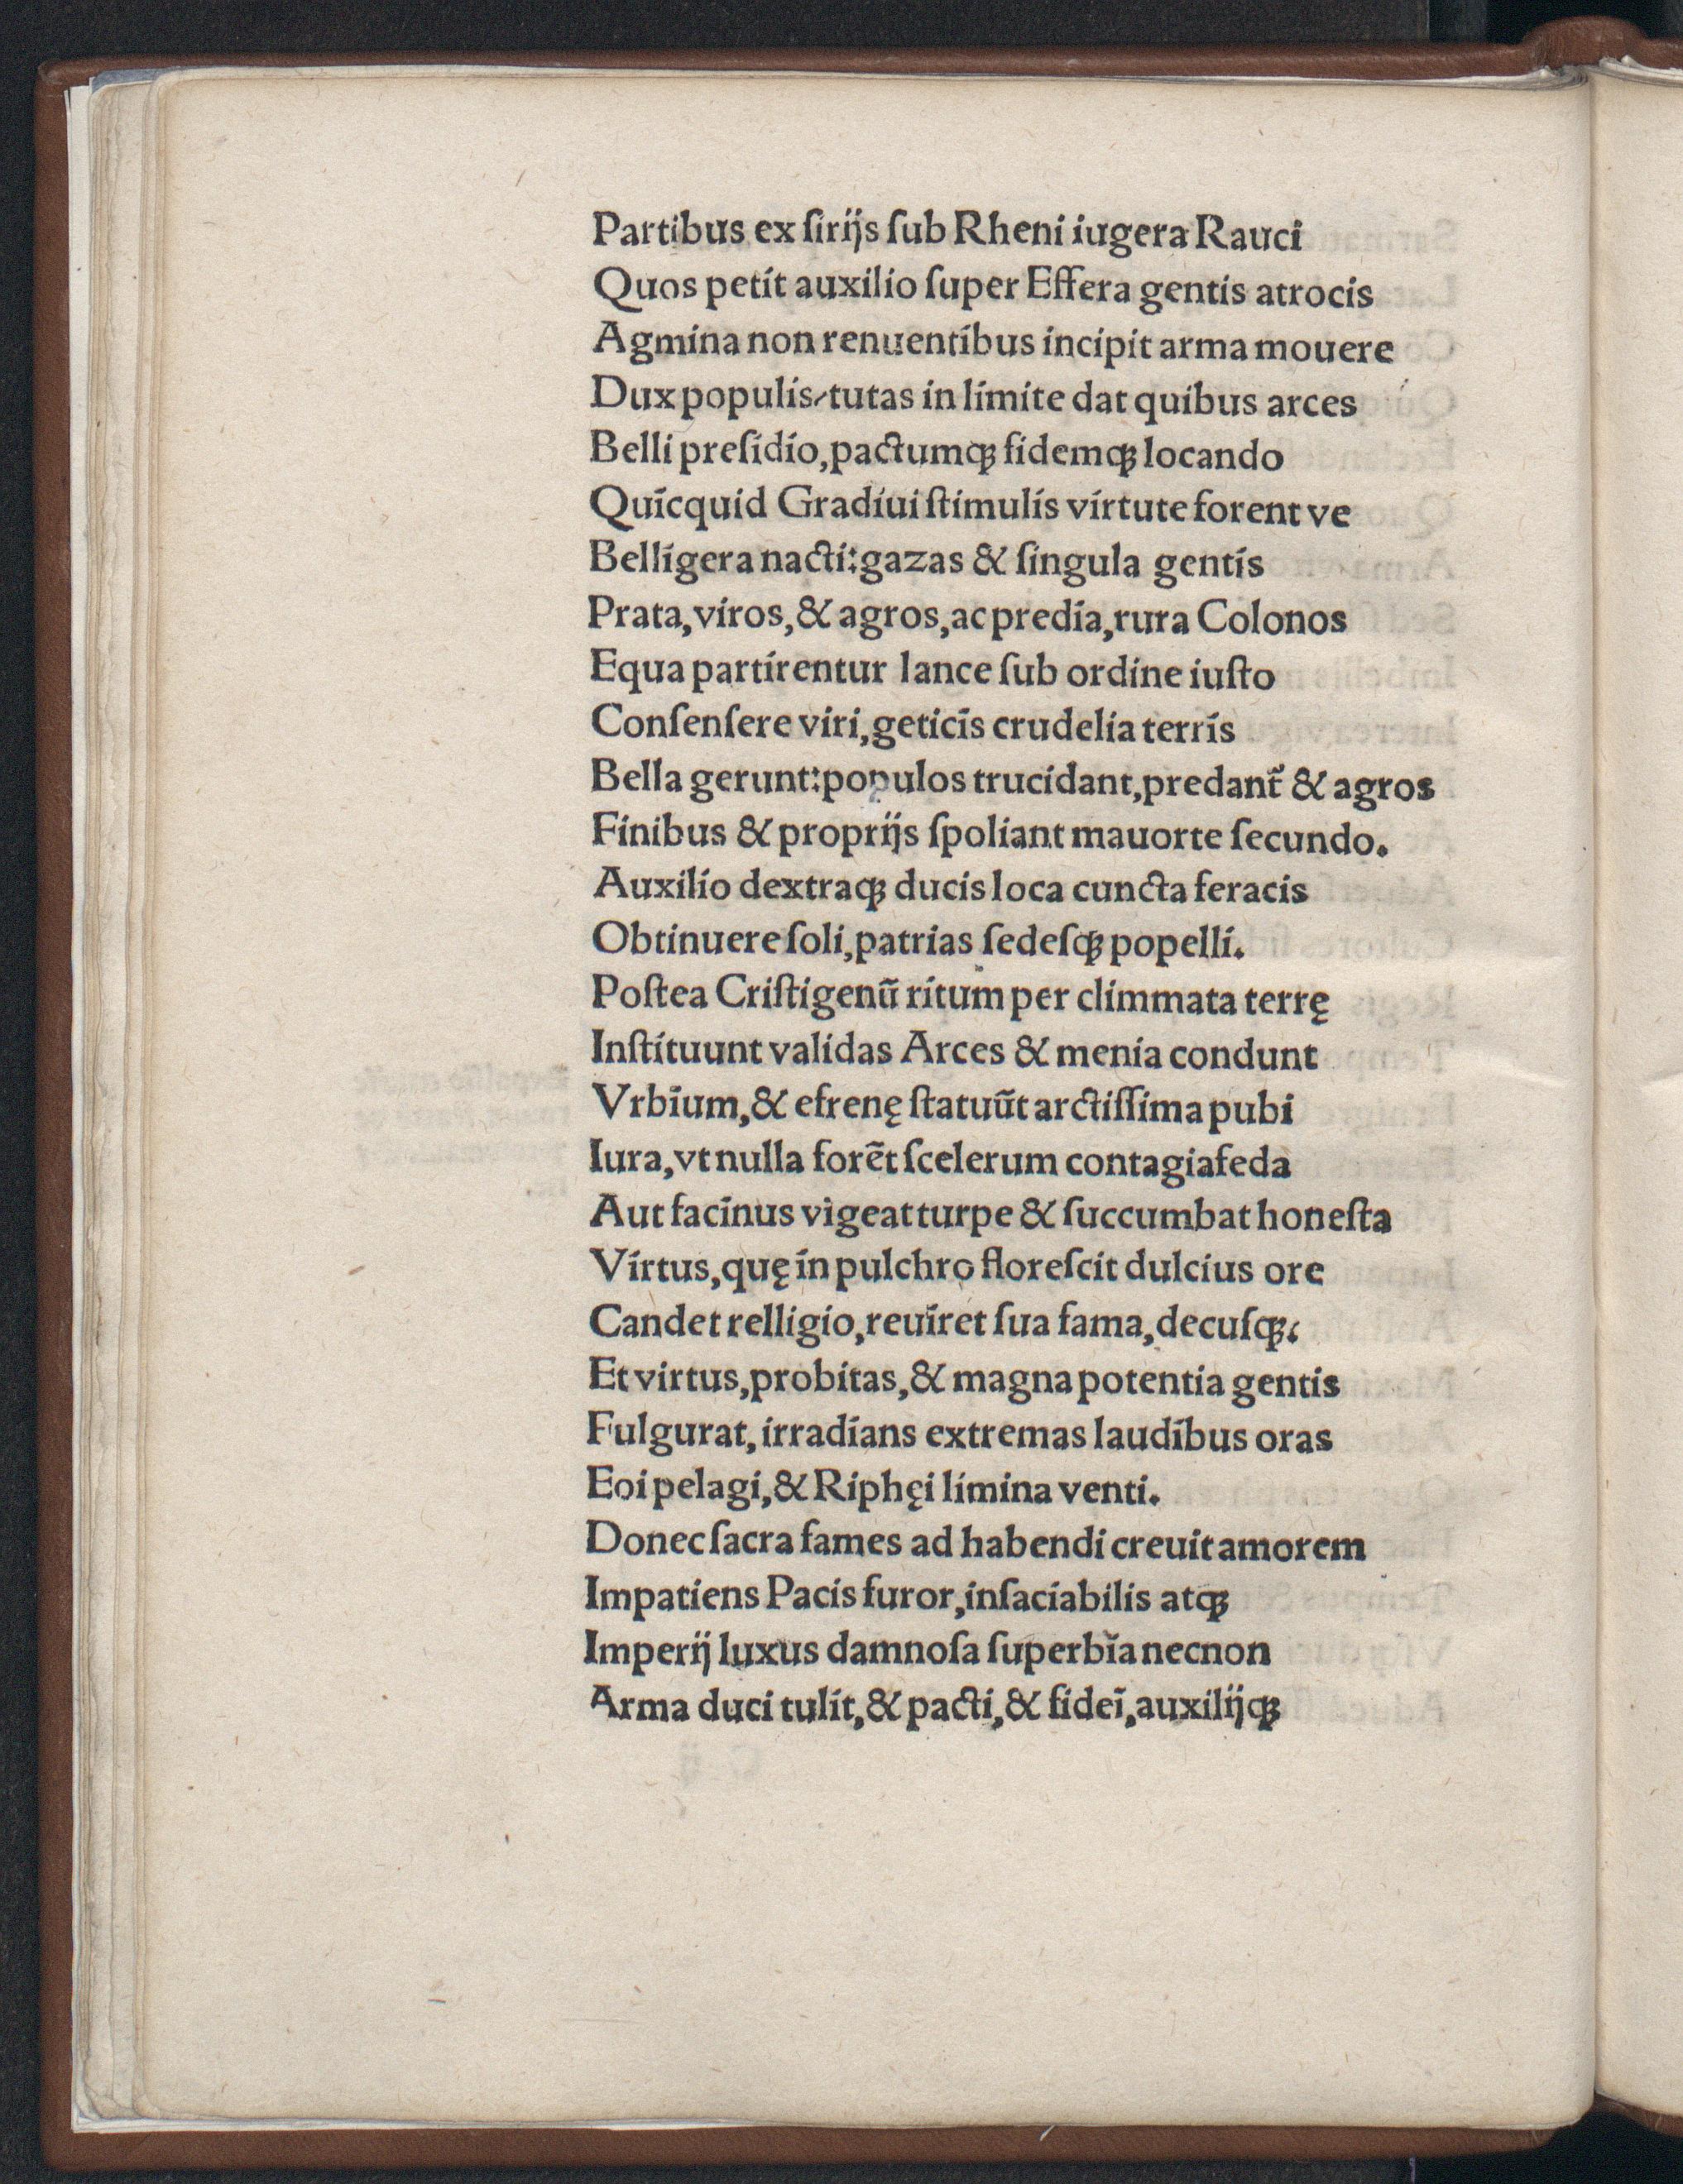 Partibus ex ſirijs ſub Rheni iugera Rauci
Quos petit auxilio ſuper Effera gentis atrocis
Agmina non renuentibus incipit arma mouere
Dux populis/tutas in limite dat quibus arces
Belli preſidio, pactumqꝫ fidemqꝫ locando
Quicquid Gradiui ſtimulis virtute forent ve
Belligera nacti: gazas & ſingula gentis
Prata, viros, & agros, ac predia, rura Colonos
Equa partirentur lance ſub ordine iuſto
Conſenſere viri, geticis crudelia terris
Bella gerunt: populos trucidant, predant̃ & agros
Finibus & proprijs ſpoliant mauorte ſecundo.
Auxilio dextraqꝫ ducis loca cuncta feracis
Obtinuere ſoli, patrias ſedeſqꝫ popelli.
Poſtea Criſtigenũ ritum per climmata terrę
Inſtituunt validas Arces & menia condunt
Vrbium, & efrenę ſtatuũt arctiſſima pubi
Iura, vt nulla forẽt ſcelerum contagia feda
Aut facinus vigeat turpe & ſuccumbat honeſta
Virtus, quę in pulchro floreſcit dulcius ore
Candet relligio, reuiret ſua fama, decuſqꝫ.
Et virtus, probitas, & magna potentia gentis
Fulgurat, irradians extremas laudibus oras
Eoi pelagi, & Riphęi limina venti.
Donec ſacra fames ad habendi creuit amorem
Impatiens Pacis furor, inſaciabilis atqꝫ
Imperij luxus damnoſa ſuperbia necnon
Arma duci tulit, & pacti, & fidei, auxilijqꝫ